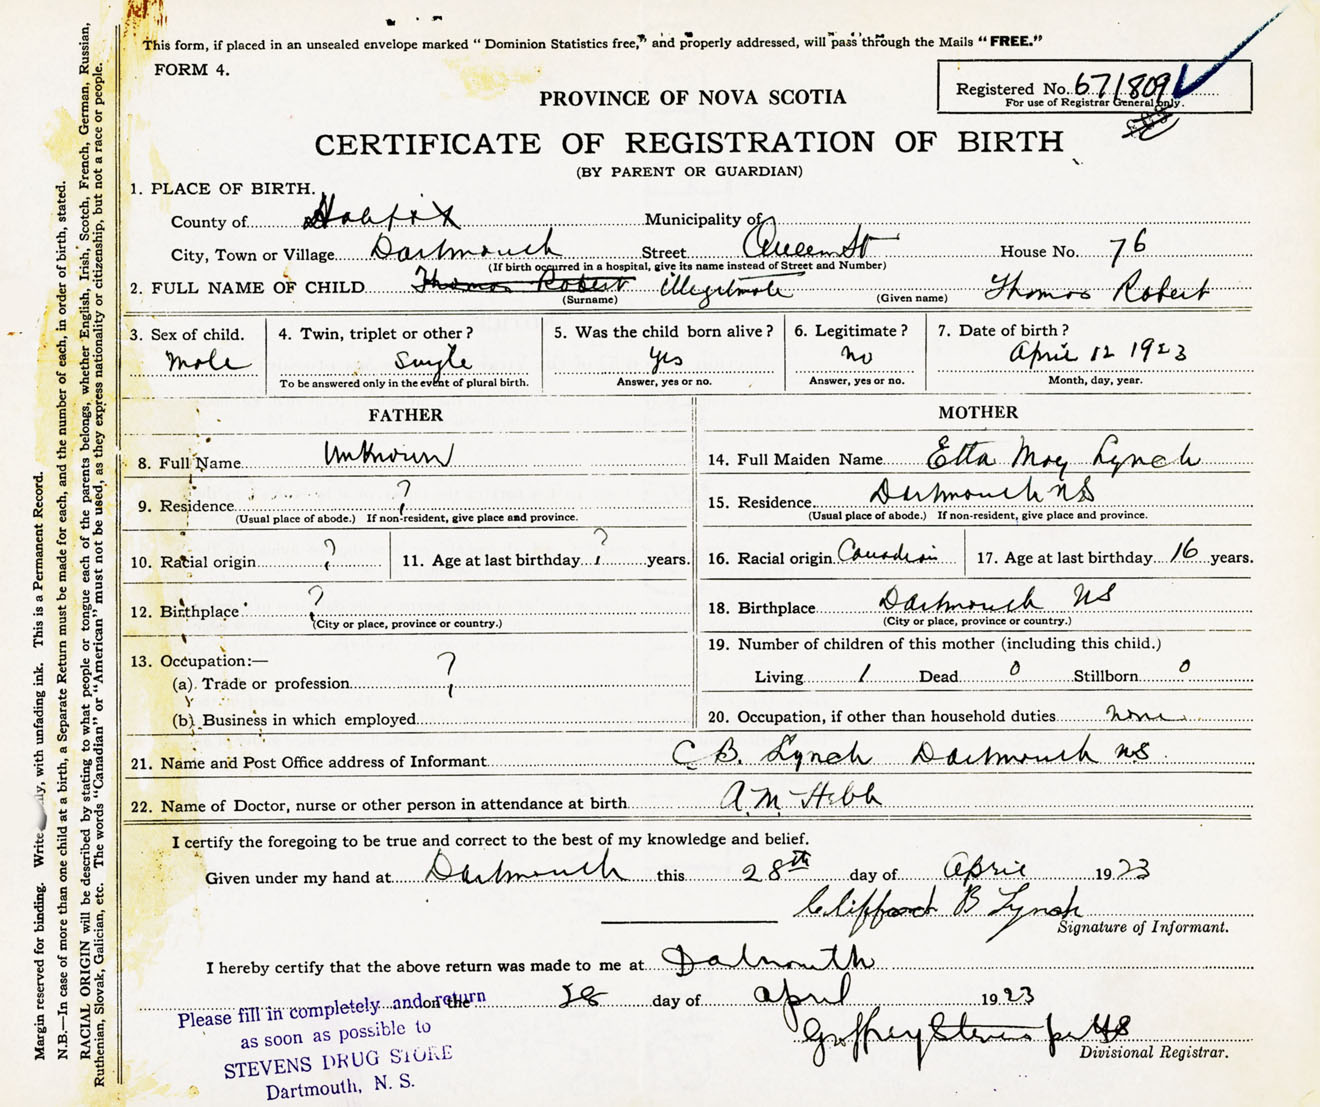 This form, if placed in an unsealed envelope marked "Dominion Statistics free," and properly addressed, will pass through the Mails "FREE."
FORM 4.
Registered No. 671809
For use of Registrar General only.
PROVINCE OF NOVA SCOTIA
CERTIFICATE OF REGISTRATION OF BIRTH
(BY PARENT OR GUARDIAN)
1. PLACE OF BIRTH.
County of Halifax Municipality of
City, Town or Village Dartmouth Street Queen St House No. 76
(If birth occurred in a hospital, give its name instead of Street and Number)
2. FULL NAME OF CHILD Thomas Robert Illegitmate Thomas Robert
(Surname) (Given name)
3. Sex of child. 4. Twin, triplet or other? 5. Was the child born alive? 6. Legitimate? 7. Date of birth?
Male Single Yes No April 12 1923
To be answered only in the event of plural birth. Answer, yes or no. Answer, yes or no. Month, day, year.
FATHER MOTHER
8. Full Name Unknown 14. Full Maiden Name Etta May Lynch
9. Residence ? 15. Residence Dartmouth NS
(Usual place of abode.) If non-resident, give place and province. (Usual place of abode.) If non-resident, give place and province.
10. Racial origin ? 11. Age at last birthday ? years. 16. Racial origin Canadian 17. Age at last birthday 16 years.
12. Birthplace ? 18. Birthplace Dartmouth NS
(City or place, province or country.) (City or place, province or country.)
13. Occupation:— 19. Number of children of this mother (including this child.)
(a) Trade or profession ? Living 1 Dead 0 Stillborn 0
(b) Business in which employed 20. Occupation, if other than household duties none
21. Name and Post Office address of Informant C B. Lynch Dartmouth NS.
22. Name of Doctor, nurse or other person in attendance at birth A. M. Hebb
I certify the foregoing to be true and correct to the best of my knowledge and belief.
Given under my hand at Dartmouth this 28th day of April 1923
Clifford B Lynch
Signature of Informant.
I hereby certify that the above return was made to me at Dartmouth
on the 28 day of April 1923
Divisional Registrar.
Please fill in completely and return
as soon as possible to
STEVENS DRUG STORE
Dartmouth, N. S.
Margin reserved for binding. Write ly, with unfading ink. This is a Permanent Record.
N.B.—In case of more than one child at a birth, a Separate Return must be made for each, and the number of each, in order of birth, stated.
RACIAL ORIGIN will be described by stating to what people or tongue each of the parents belongs, whether English, Irish, Scotch, French, German, Russian,
Ruthenian, Slovak, Galician, etc. The words "Canadian" or "American" must not be used, as they express nationality or citizenship, but not a race or people.